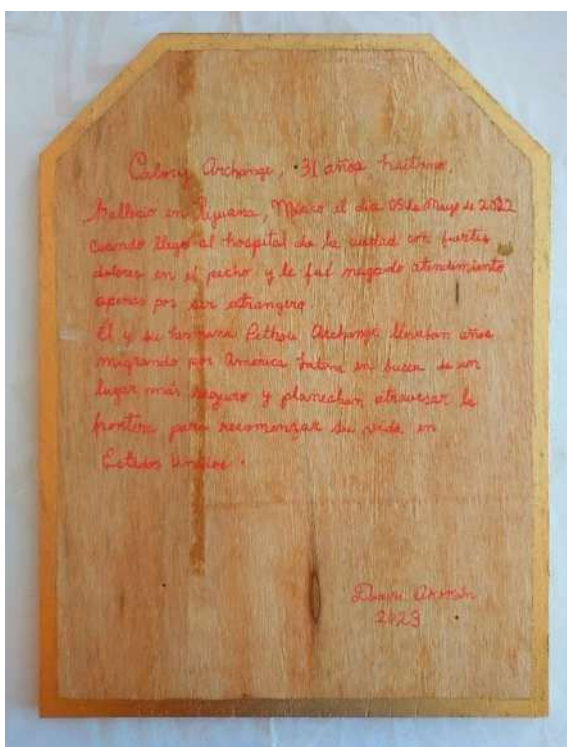 Calory Archange, 31 años haitiano,
Fallecio en Tijuana, México el dia 05 de Mayo de 2022
cuando llego al hospital de la ciudad con fuertes
dolores en el pecho y le fué negado atendimiento
apenas por ser estrangero.
El y su hermana Archange llevaban años
migrando por America Latina en busca de un
lugar más seguro y planeaban atravesar la
frontera para recomenzar su vida en
Estados Unidos.
2023